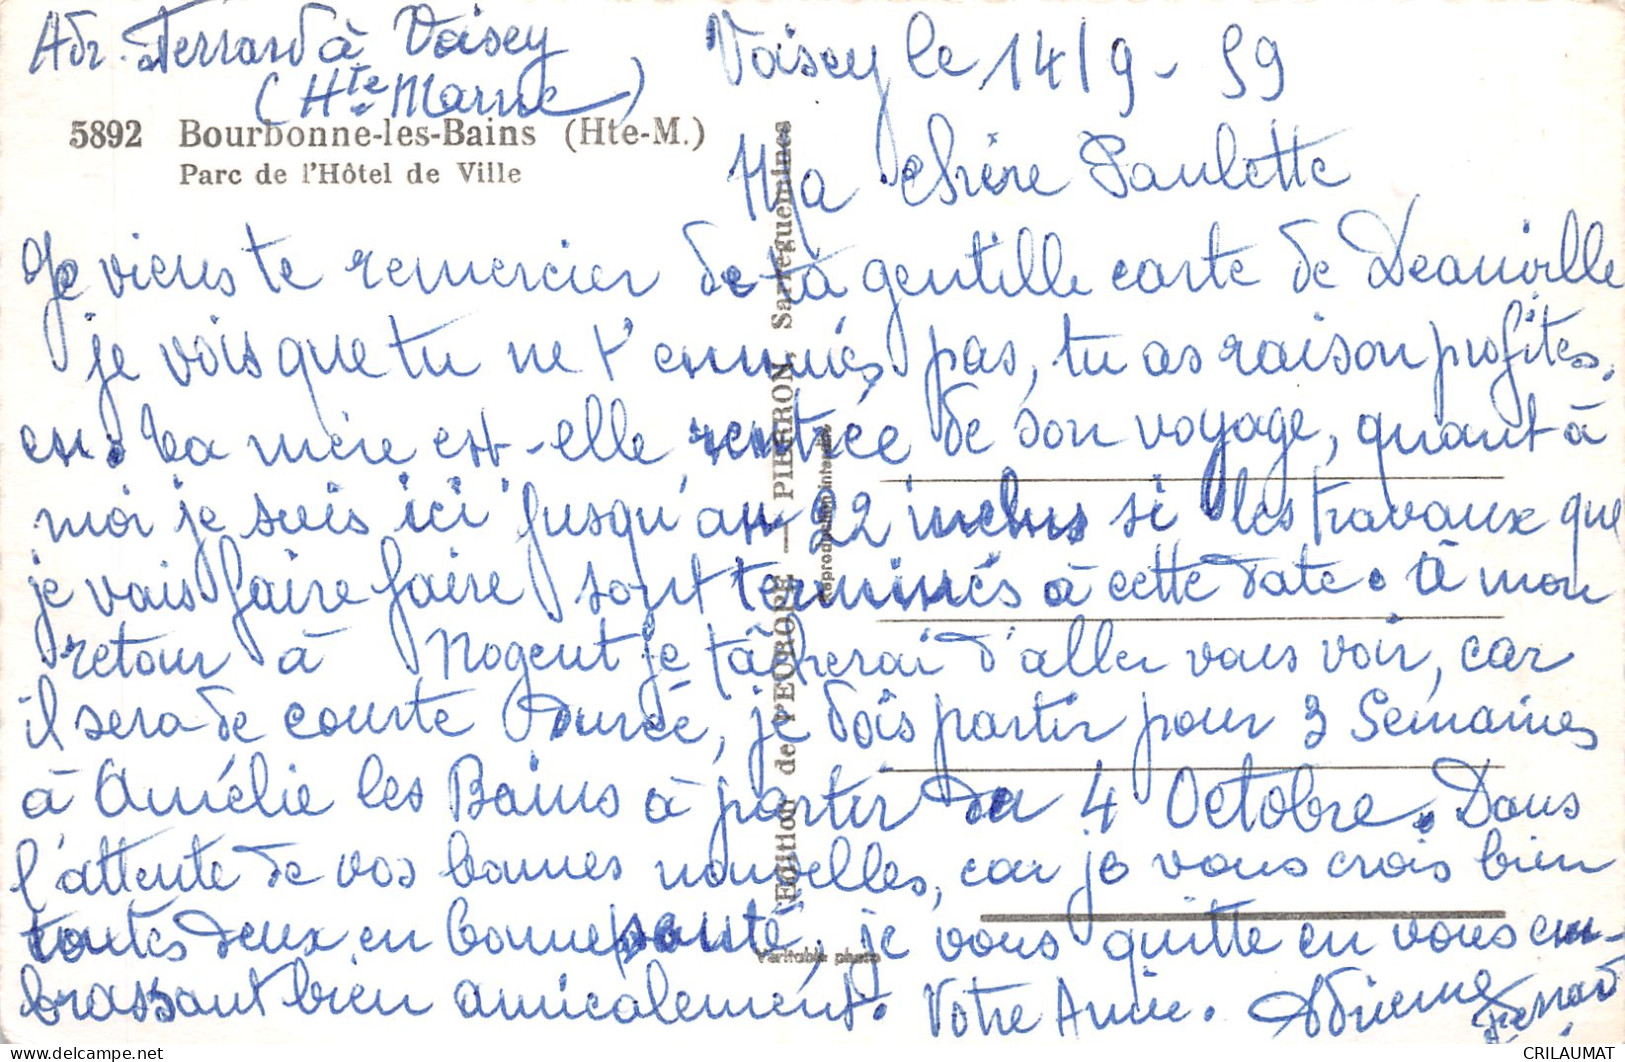 Adr. Ferrand à Voisey
(Hte Marne)
Voisey le 14/9-59
5892 Bourbonne-les-Bains (Hte-M.)
Parc de l'Hôtel de Ville
Ma chère Paulette
Je viens te remercier de ta gentille carte de Deauville
je vois que tu ne t'ennuies pas, tu as raison profites,
en. Ta mère est-elle rentrée de son voyage, quant à
moi je suis ici jusqu'au 22 inclus si les travaux que
je vais faire faire sont terminés à cette date. à mon
retour à Nogent je tâcherai d'aller vous voir, car
il sera de courte durée, je dois partir pour 3 Semaines
à Amélie les Bains à partir du 4 Octobre. Dans
l'attente de vos bonnes nouvelles, car je vous crois bien
toutes deux en bonne santé, je vous quitte en vous em-
brassant bien amicalement. Votre Amie. Adrienne Ferrand
Edition de l'EUROPE — PIERRON, Sarreguemines
Reproduction interdite
Véritable photo
CRILAUMAT